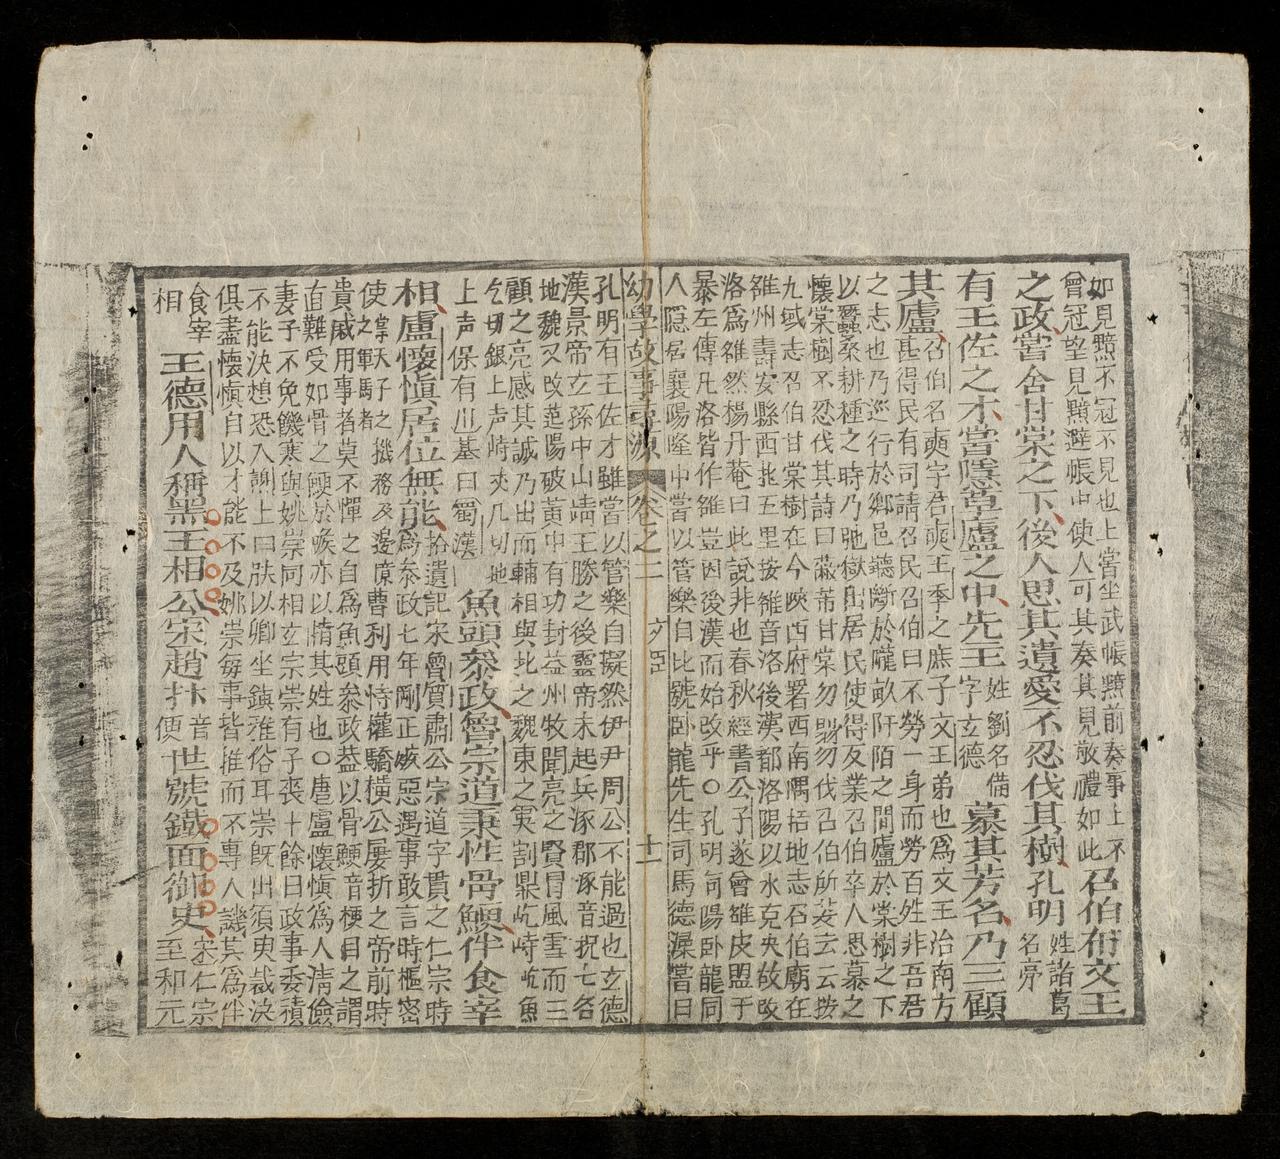 如見黯不冠不見也上嘗坐武帳黯前奏事上不
曾冠望見黯避帳中使人可其奏其見敬禮如此
召伯布文王
之政嘗舍甘棠之下後人思其遺愛不忍伐其樹孔明姓諸葛名亮
有王佐之才嘗隱草廬之中先王姓劉名備字玄德慕其芳名乃三顧
其廬
召伯名奭字君奭王季之庶子文王弟也為文王治南方
甚得民有司請召民召伯曰不勞一身而勞百姓非吾君
之志也乃巡行於鄉邑聽斷於隴畝阡陌之間廬於棠樹之下
以蠶桑耕種之時乃弛獄出居民使得反業召伯卒人思慕之
懷棠樹不忍伐其詩曰蔽芾甘棠勿剪勿伐召伯所茇云云按
九域志召伯甘棠樹在今陝西府署西南隅括地志召伯廟在
雒州壽安縣西北五里按雒音洛後漢都洛陽以水克火故改
洛為雒然楊丹菴曰此說非也春秋經書公子遂會雒戎盟于
暴左傳凡洛皆作雒豈因後漢而始改乎○孔明南陽卧龍同
人隱居襄陽隆中嘗以管樂自比號卧龍先生司馬德操嘗曰
幼學故事尋源 卷之二 文臣 十二
孔明有王佐才雖嘗以管樂自擬然伊尹周公不能過也玄德
漢景帝玄孫中山靖王勝之後靈帝末起兵涿郡涿音捉七各
地魏又改范陽破黃巾有功封益州牧聞亮之賢冒風雪而三
顧之亮感其誠乃出而輔相與北之魏東之吳割鼎屹峙屹魚
乞切銀上声峙夾几切地
上声保有川基曰蜀漢
魚頭參政魯宗道秉性骨鯁伴食宰
相盧懷慎居位無能
拾遺記宋魯簡肅公宗道字貫之仁宗時
為參政七年剛正疾惡遇事敢言時樞密
使掌天子之機務及邊徼之軍馬者曹利用恃權驕橫公屢折之帝前時
貴戚用事者莫不憚之自為魚頭參政蓋以骨鯁音梗目之謂
直難受如骨之鯁於喉亦以情其姓也○唐盧懷慎為人清儉
妻子不免饑寒與姚崇同相玄宗崇有子喪十餘日政事委積
不能決想恐入謝上曰朕以卿坐鎮雅俗耳崇旣出須臾裁決
俱盡懷慎自以才能不及姚崇每事皆推而不專人譏其為伴
食宰相
王德用人稱黑王相公宋趙抃音便世號鐵面御史宋仁宗至和元